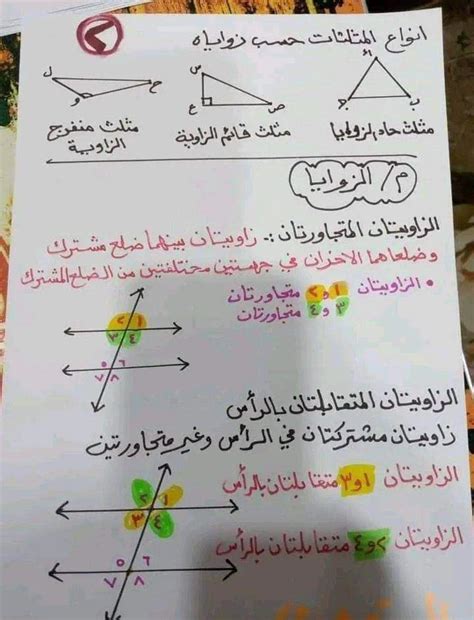 ٢
انواع المثلثات حسب زواياه
أ
ب
س
ع
ص
ل
و
ح
مثلث حاد الزوايا
مثلث قائم الزاوية
مثلث منفرج الزاوية
م/ الزوايا
الزاويتان المتجاورتان :- زاويتان بينهما ضلع مشترك
وضلعاهما الاخران في جهتين مختلفتين من الضلع المشترك
• الزاويتان ١ و ٢ متجاورتان
٣ و ٤ متجاورتان
٢ ١
٣ ٤
٥ ٦
٧ ٨
الزاويتان المتقابلتان بالرأس
زاويتان مشتركتان في الرأس وغير متجاورتين
الزاويتان ١ و ٣ متقابلتان بالرأس
٢ ١
٣ ٤
الزاويتان ٢ و ٤ متقابلتان بالرأس
٥ ٦
٧ ٨